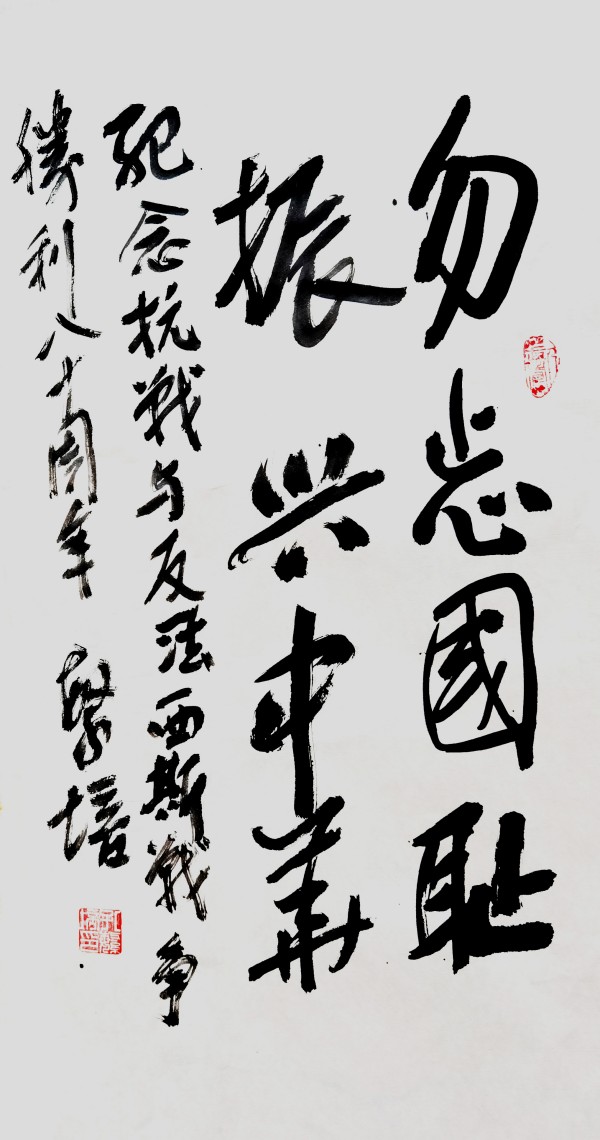 勿忘國耻
振兴中華
紀念抗战与反法西斯战争
勝利八十周年